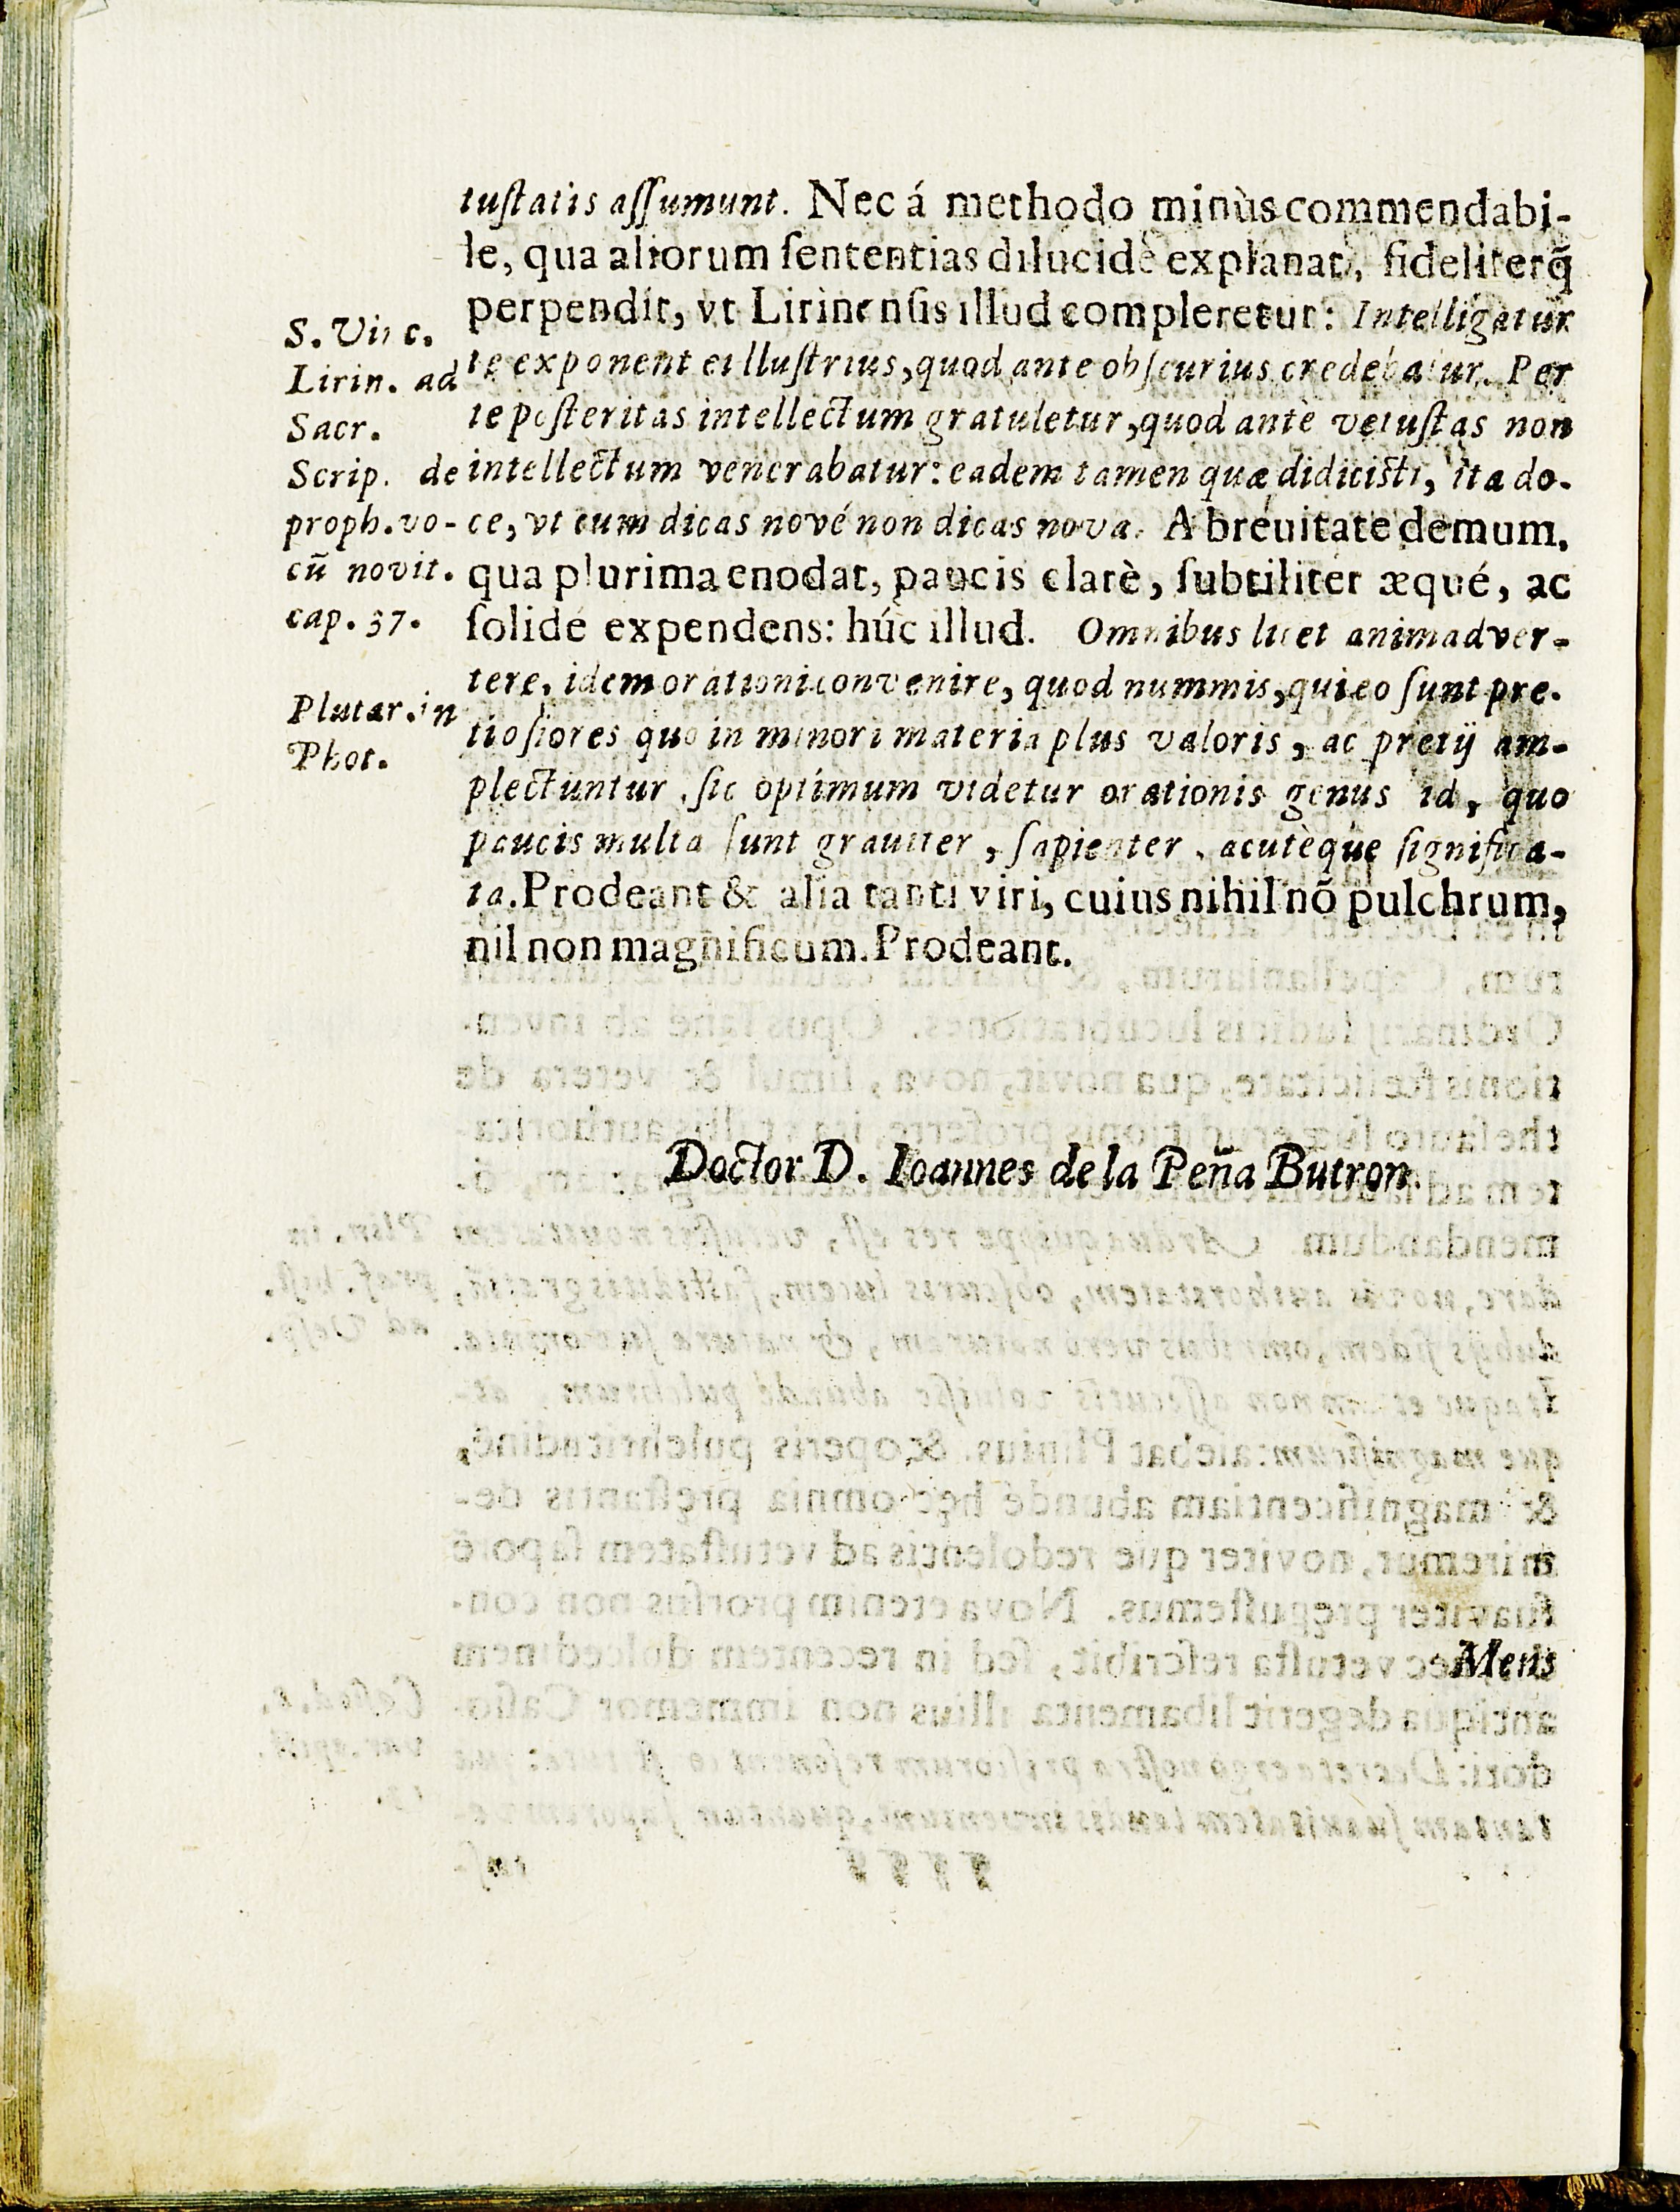 tuſtatis aſſumunt. Nec á methodo minùs commendabi-
le, qua aliorum ſententias dilucidè explanat, fideliterq̃
perpendit, vt Lirinenſis illud compleretur: Intelligatur
te exponent ei lluſtrius, quod ante obſcurius credebatur. Per
te poſteritas intellectum gratuletur, quod antè vetuſtas non
intellectum venerabatur: eadem tamen quæ didicisti, ita do-
ce, vt cum dicas nové non dicas nova. A breuitate demum,
qua plurima enodat, paucis clarè, ſubtiliter æqué, ac
ſolidé expendens: húc illud. Omnibus licet animadver-
tere, idem orationi convenire, quod nummis, qui eo ſunt pre-
tioſiores quo in minori materia plus valoris, ac pretij am-
plectuntur, ſic optimum videtur orationis genus id, quo
paucis multa ſunt grauiter, ſapienter, acutèque ſignifica-
ta. Prodeant & alia tanti viri, cuius nihil nõ pulchrum,
nil non magnificum. Prodeant.
S. Vinc.
Lirin. ad
Sacr.
Scrip. de
proph. vo-
cũ novit.
cap. 37.
Plutar. in
Phot.
Doctor D. Ioannes de la Peña Butron.
Mens